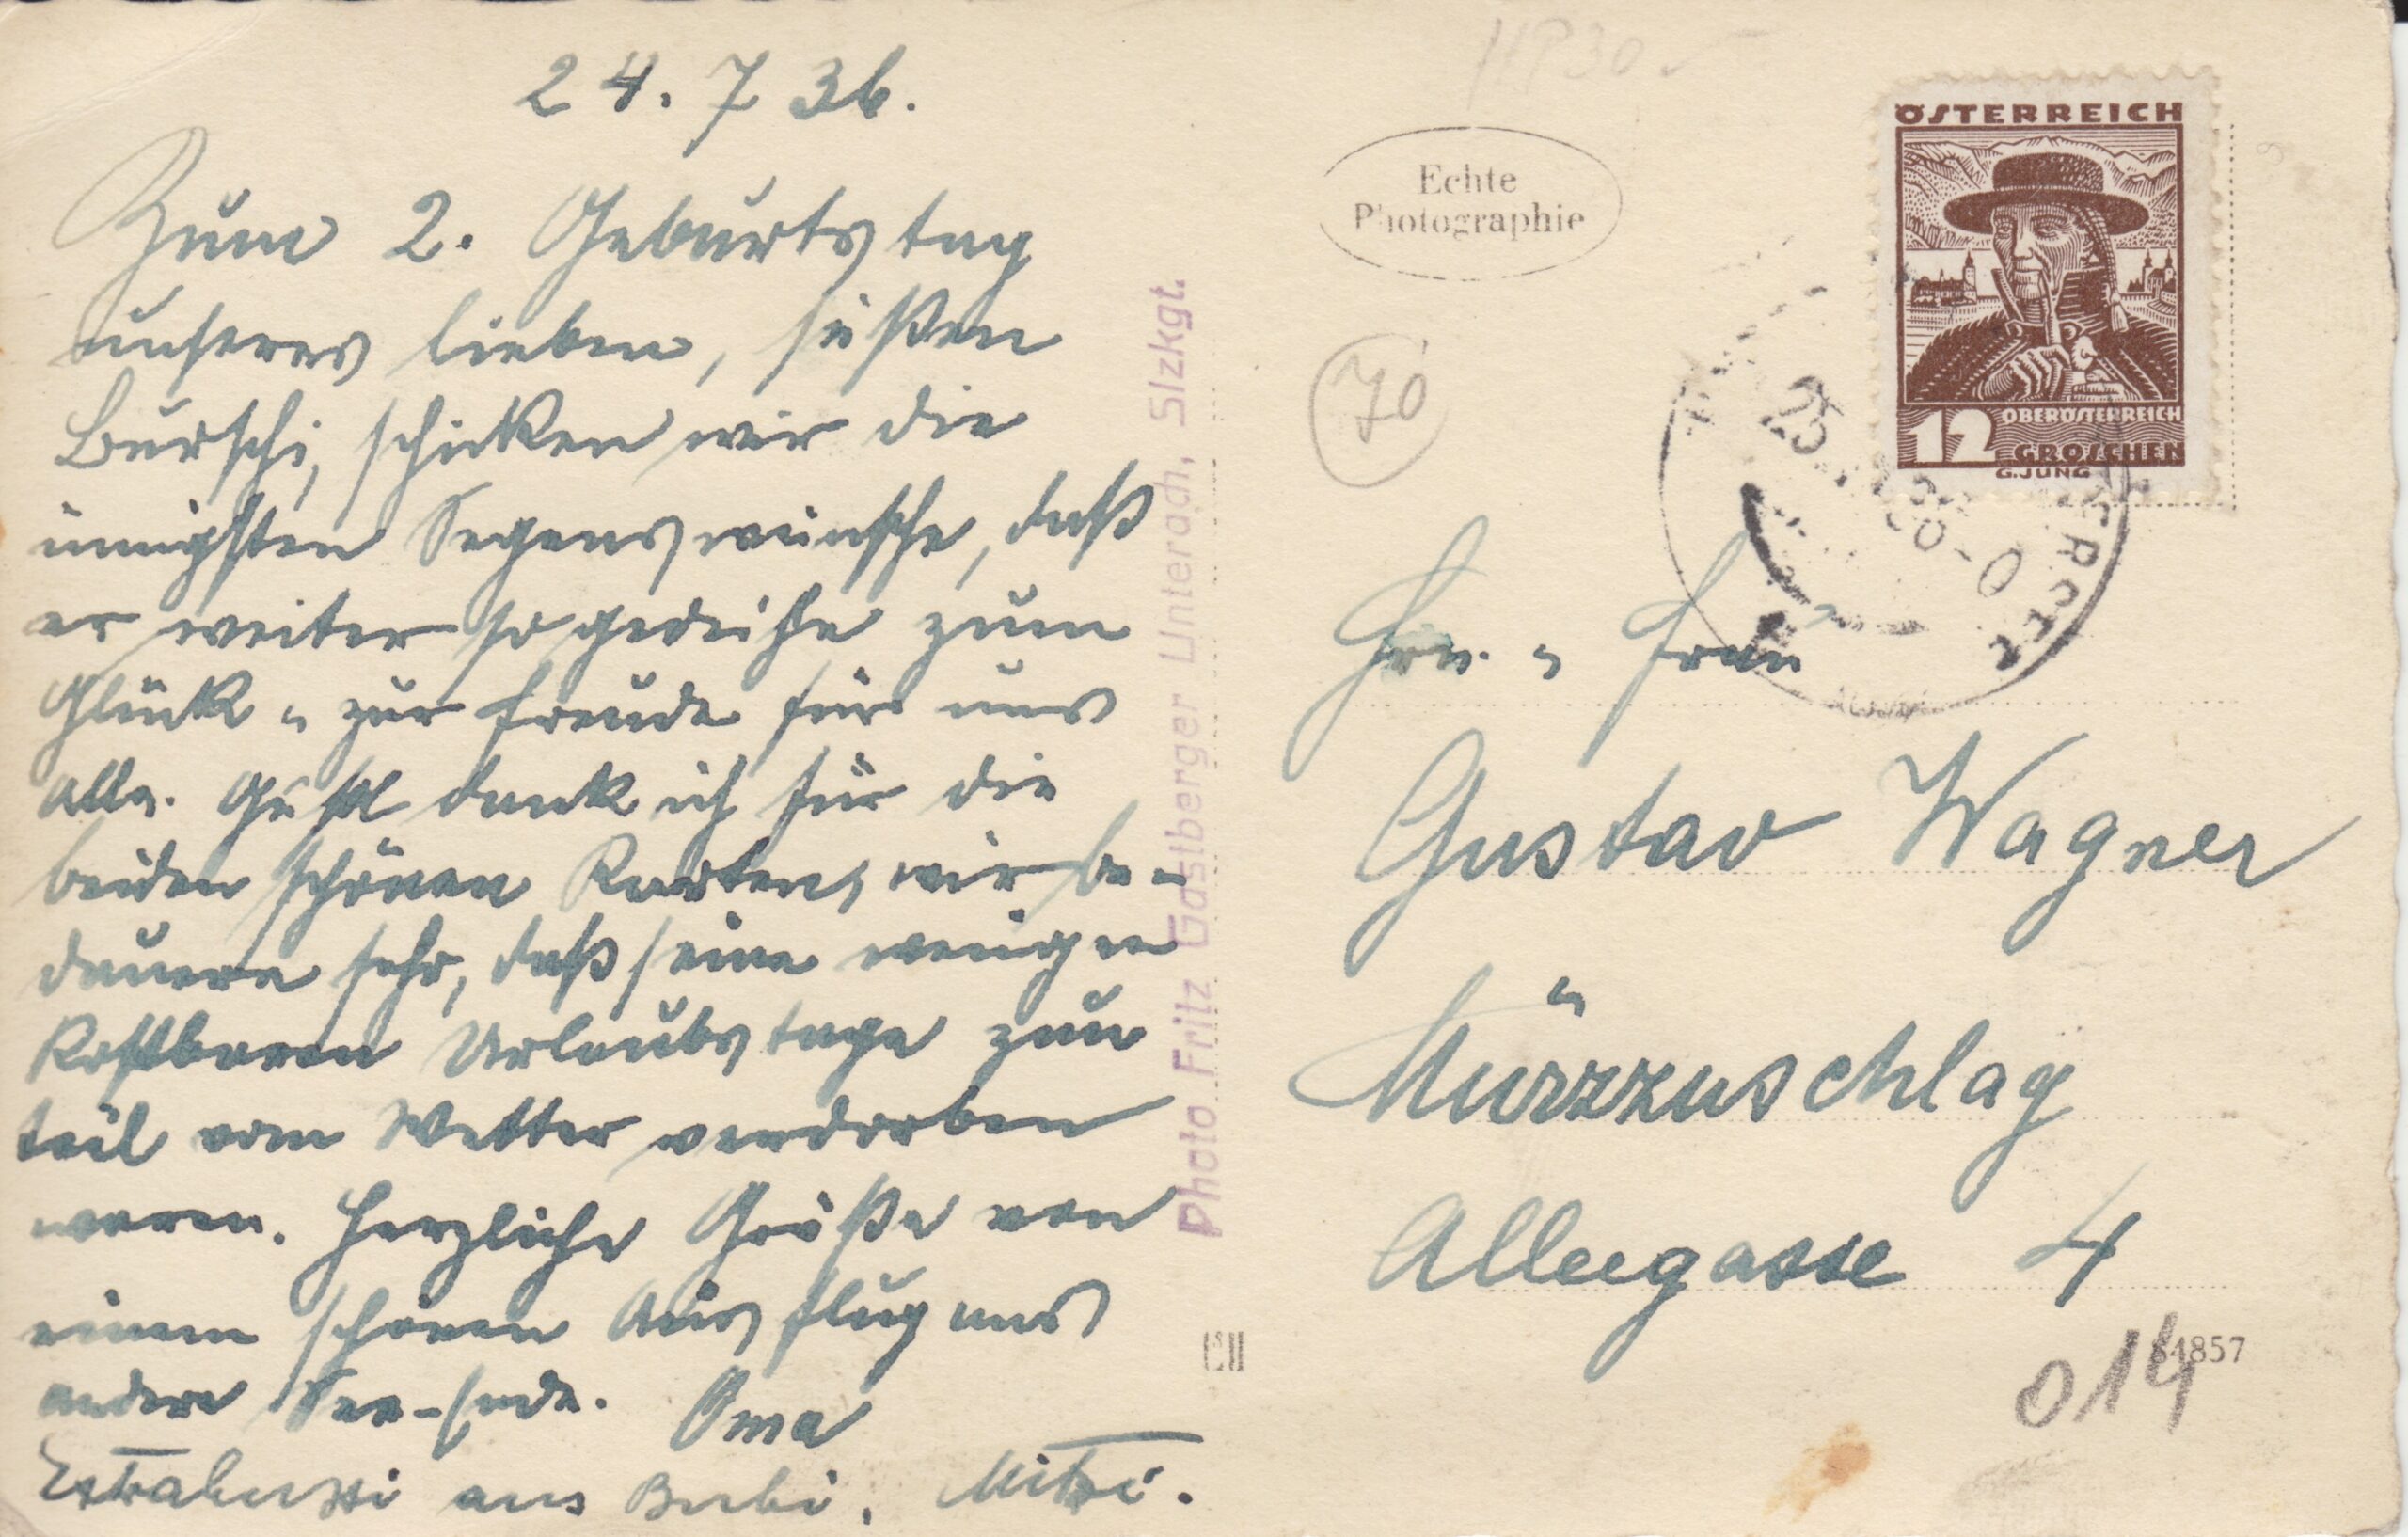 24. 7 36.
Zum 2. Geburtstag
unseres lieben, süßen
Burschi, schicken wir die
innigsten Segenswünsche, daß
er weiter so gedeihe zum
Glück u. zur Freude für uns
alle. Gustl dank ich für die
beiden schönen Karten, wir be-
dauern sehr, daß seine wenigen
kostbaren Urlaubstage zum
teil vom Wetter verdorben
waren. Herzliche Grüße von
einem schönen Ausflug ans
andere See-Ende. Oma
Extrabussi ans Bubi. Mitzi.
Photo Fritz Gastberger Unterach, Slzkgt.
Echte
Photographie
70
ÖSTERREICH
OBERÖSTERREICH
12 GROSCHEN
G.JUNG
Hrn. u. Frau
Gustav Wagner
Mürzzuschlag
Alleegasse 4
014